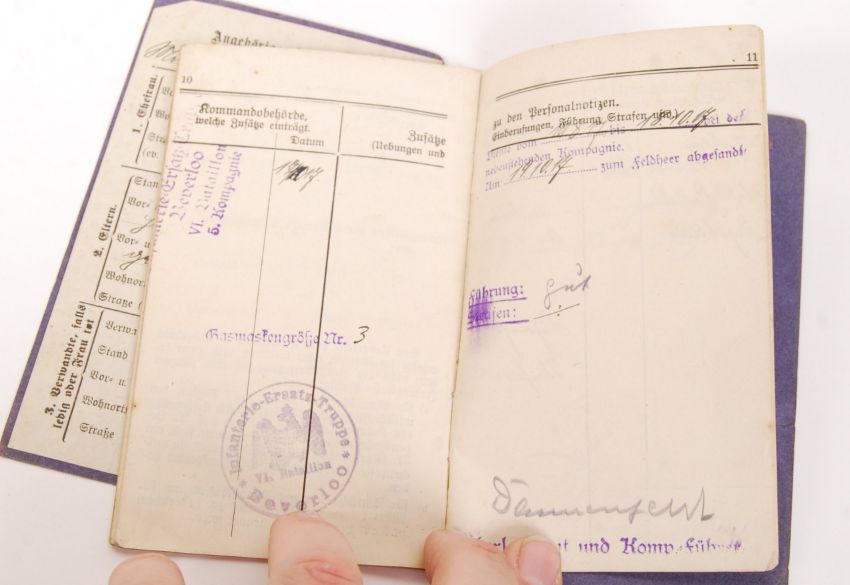 1. Ehefrau.
2. Eltern.
Vor- u.
Wohnort
Straße
3. Verwandte, falls
ledig oder Frau tot
Verwa
Stand
Vor- u.
Wohnort
Straße
10
Kommandobehörde,
welche Zusätze einträgt.
Datum
Zusätze
(Uebungen und
Beverloo
VI. Bataillon
5. Kompagnie
Gasmaskengröße Nr. 3
Infanterie-Ersatz-Truppe
VI. Bataillon
* Beverloo *
11
zu den Personalnotizen.
Einberufungen, Führung, Strafen usw.)
vom bis 18.10.17 bei der
nebenstehenden Kompagnie.
Am 19.10.17 zum Feldheer abgesandt
Führung: gut
Strafen:
Dannenfeldt
und Komp.-Führer